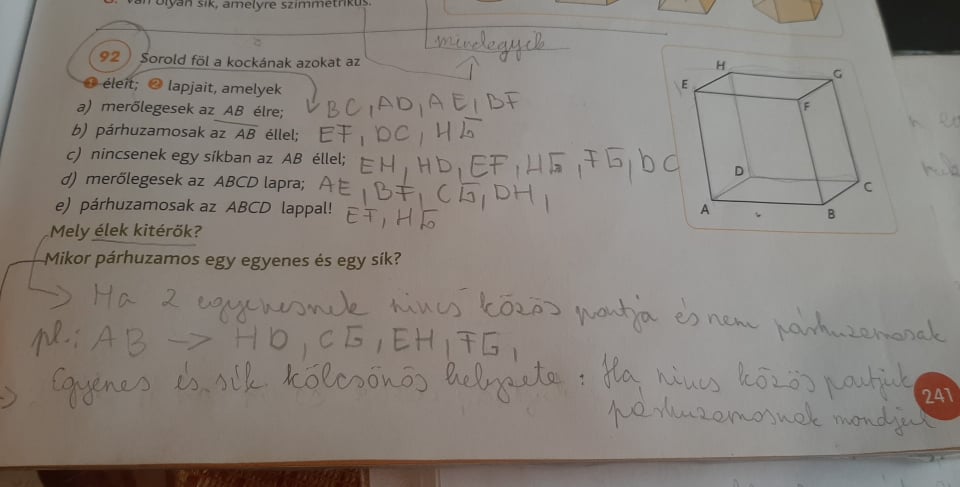 Van olyan sík, amelyre szimmetrikus.
mindegyik
92 Sorold föl a kockának azokat az
1 éleit; 2 lapjait, amelyek
a) merőlegesek az AB élre; BC, AD, AE, BF
b) párhuzamosak az AB éllel; EF, DC, HG
c) nincsenek egy síkban az AB éllel; EH, HD, EF, HG, FG, DC
d) merőlegesek az ABCD lapra; AE, BF, CG, DH,
e) párhuzamosak az ABCD lappal! EF, HG
Mely élek kitérők?
Mikor párhuzamos egy egyenes és egy sík?
H
G
E
F
D
C
A
B
Ha 2 egyenesnek nincs közös pontja és nem párhuzamosak
pl.: AB → HD, CG, EH, FG,
Egyenes és sík kölcsönös helyzete: Ha nincs közös pontjuk
párhuzamosnak mondjuk
241